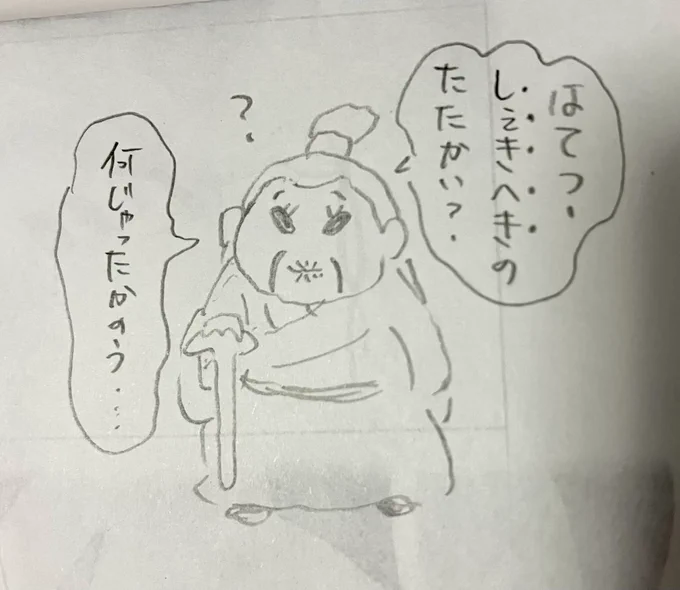 はてっ.
しえきへきの
たたかい?.
?
何じゃったかのう....